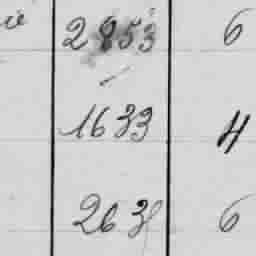 2853 6
1633 4
263 6